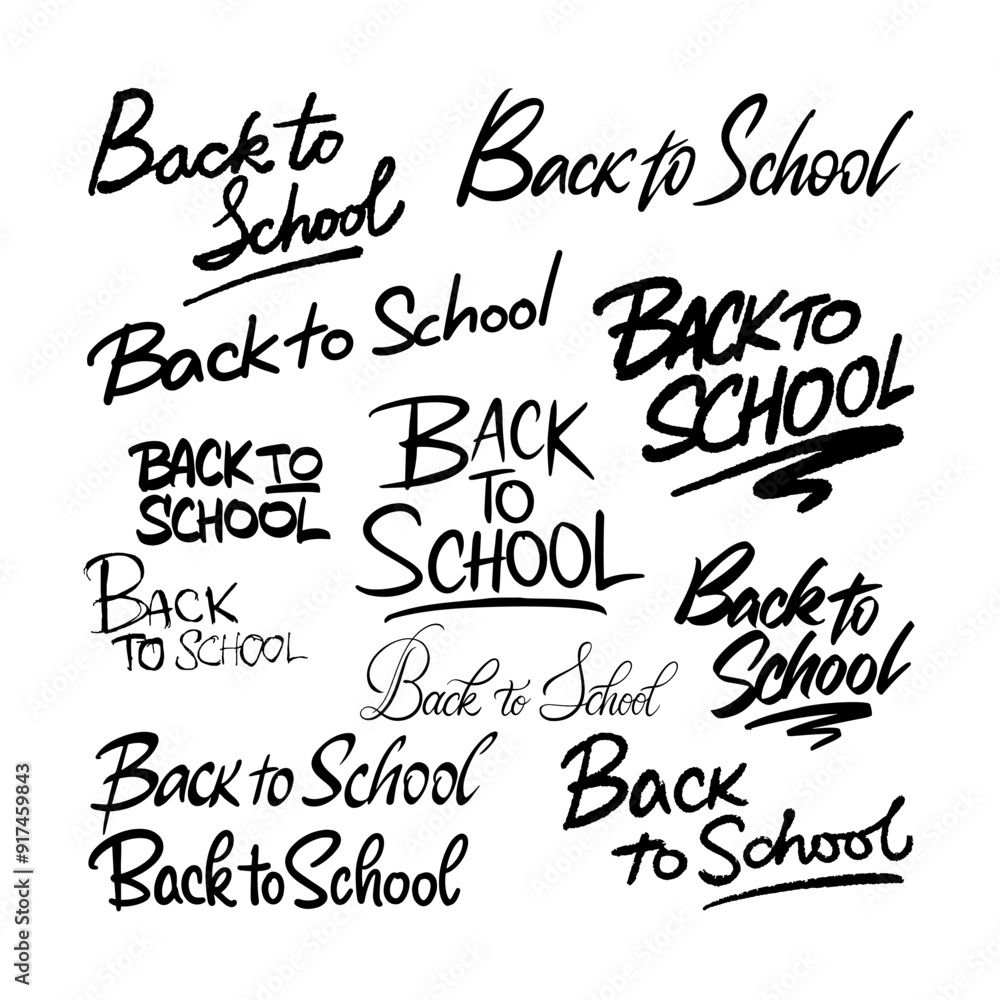 Back to
School
Back to School
Back to School
BACK TO
SCHOOL
BACK TO
SCHOOL
BACK
TO
SCHOOL
BACK
TO SCHOOL
Back to
School
Back to School
Back to School
Back to School
Back
to School
Adobe Stock | #917459843